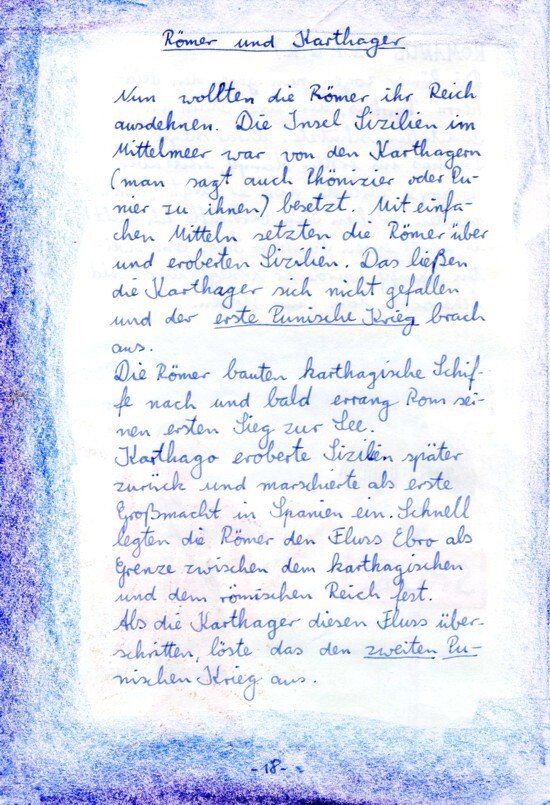 Römer und Karthager
Nun wollten die Römer ihr Reich
ausdehnen. Die Insel Sizilien im
Mittelmeer war von den Karthagern
(man sagt auch Phönizier oder Pu-
nier zu ihnen) besetzt. Mit einfa-
chen Mitteln setzten die Römer über
und eroberten Sizilien. Das ließen
die Karthager sich nicht gefallen
und der erste Punische Krieg brach
aus.
Die Römer bauten karthagische Schif-
fe nach und bald errang Rom sei-
nen ersten Sieg zur See.
Karthago eroberte Sizilien später
zurück und marschierte als erste
Großmacht in Spanien ein. Schnell
legten die Römer den Fluss Ebro als
Grenze zwischen dem karthagischen
und dem römischen Reich fest.
Als die Karthager diesen Fluss über-
schritten, löste das den zweiten Pu-
nischen Krieg aus.
- 18 -